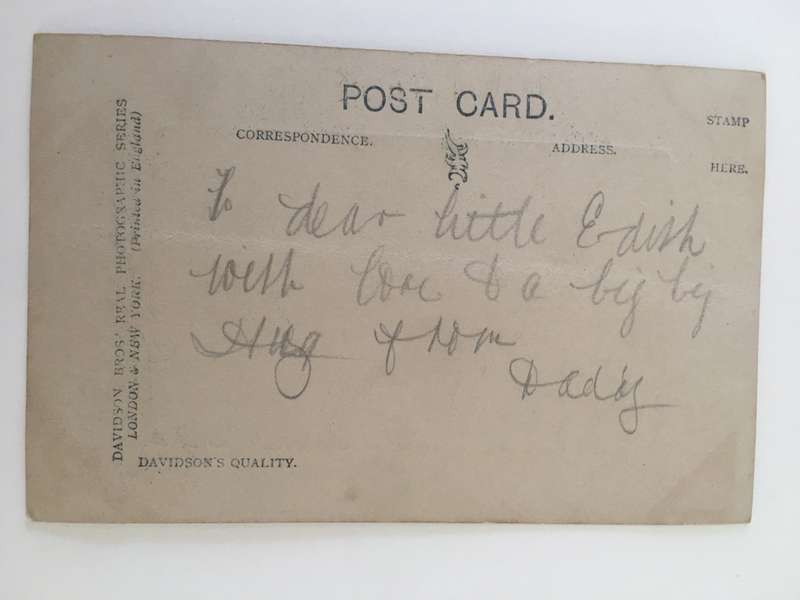 POST CARD.
CORRESPONDENCE.
ADDRESS.
STAMP
HERE.
To dear little Edith
with love & a big big
Hug from
Daddy
DAVIDSON BROS' REAL PHOTOGRAPHIC SERIES
LONDON & NEW YORK. (Printed in England)
DAVIDSON'S QUALITY.